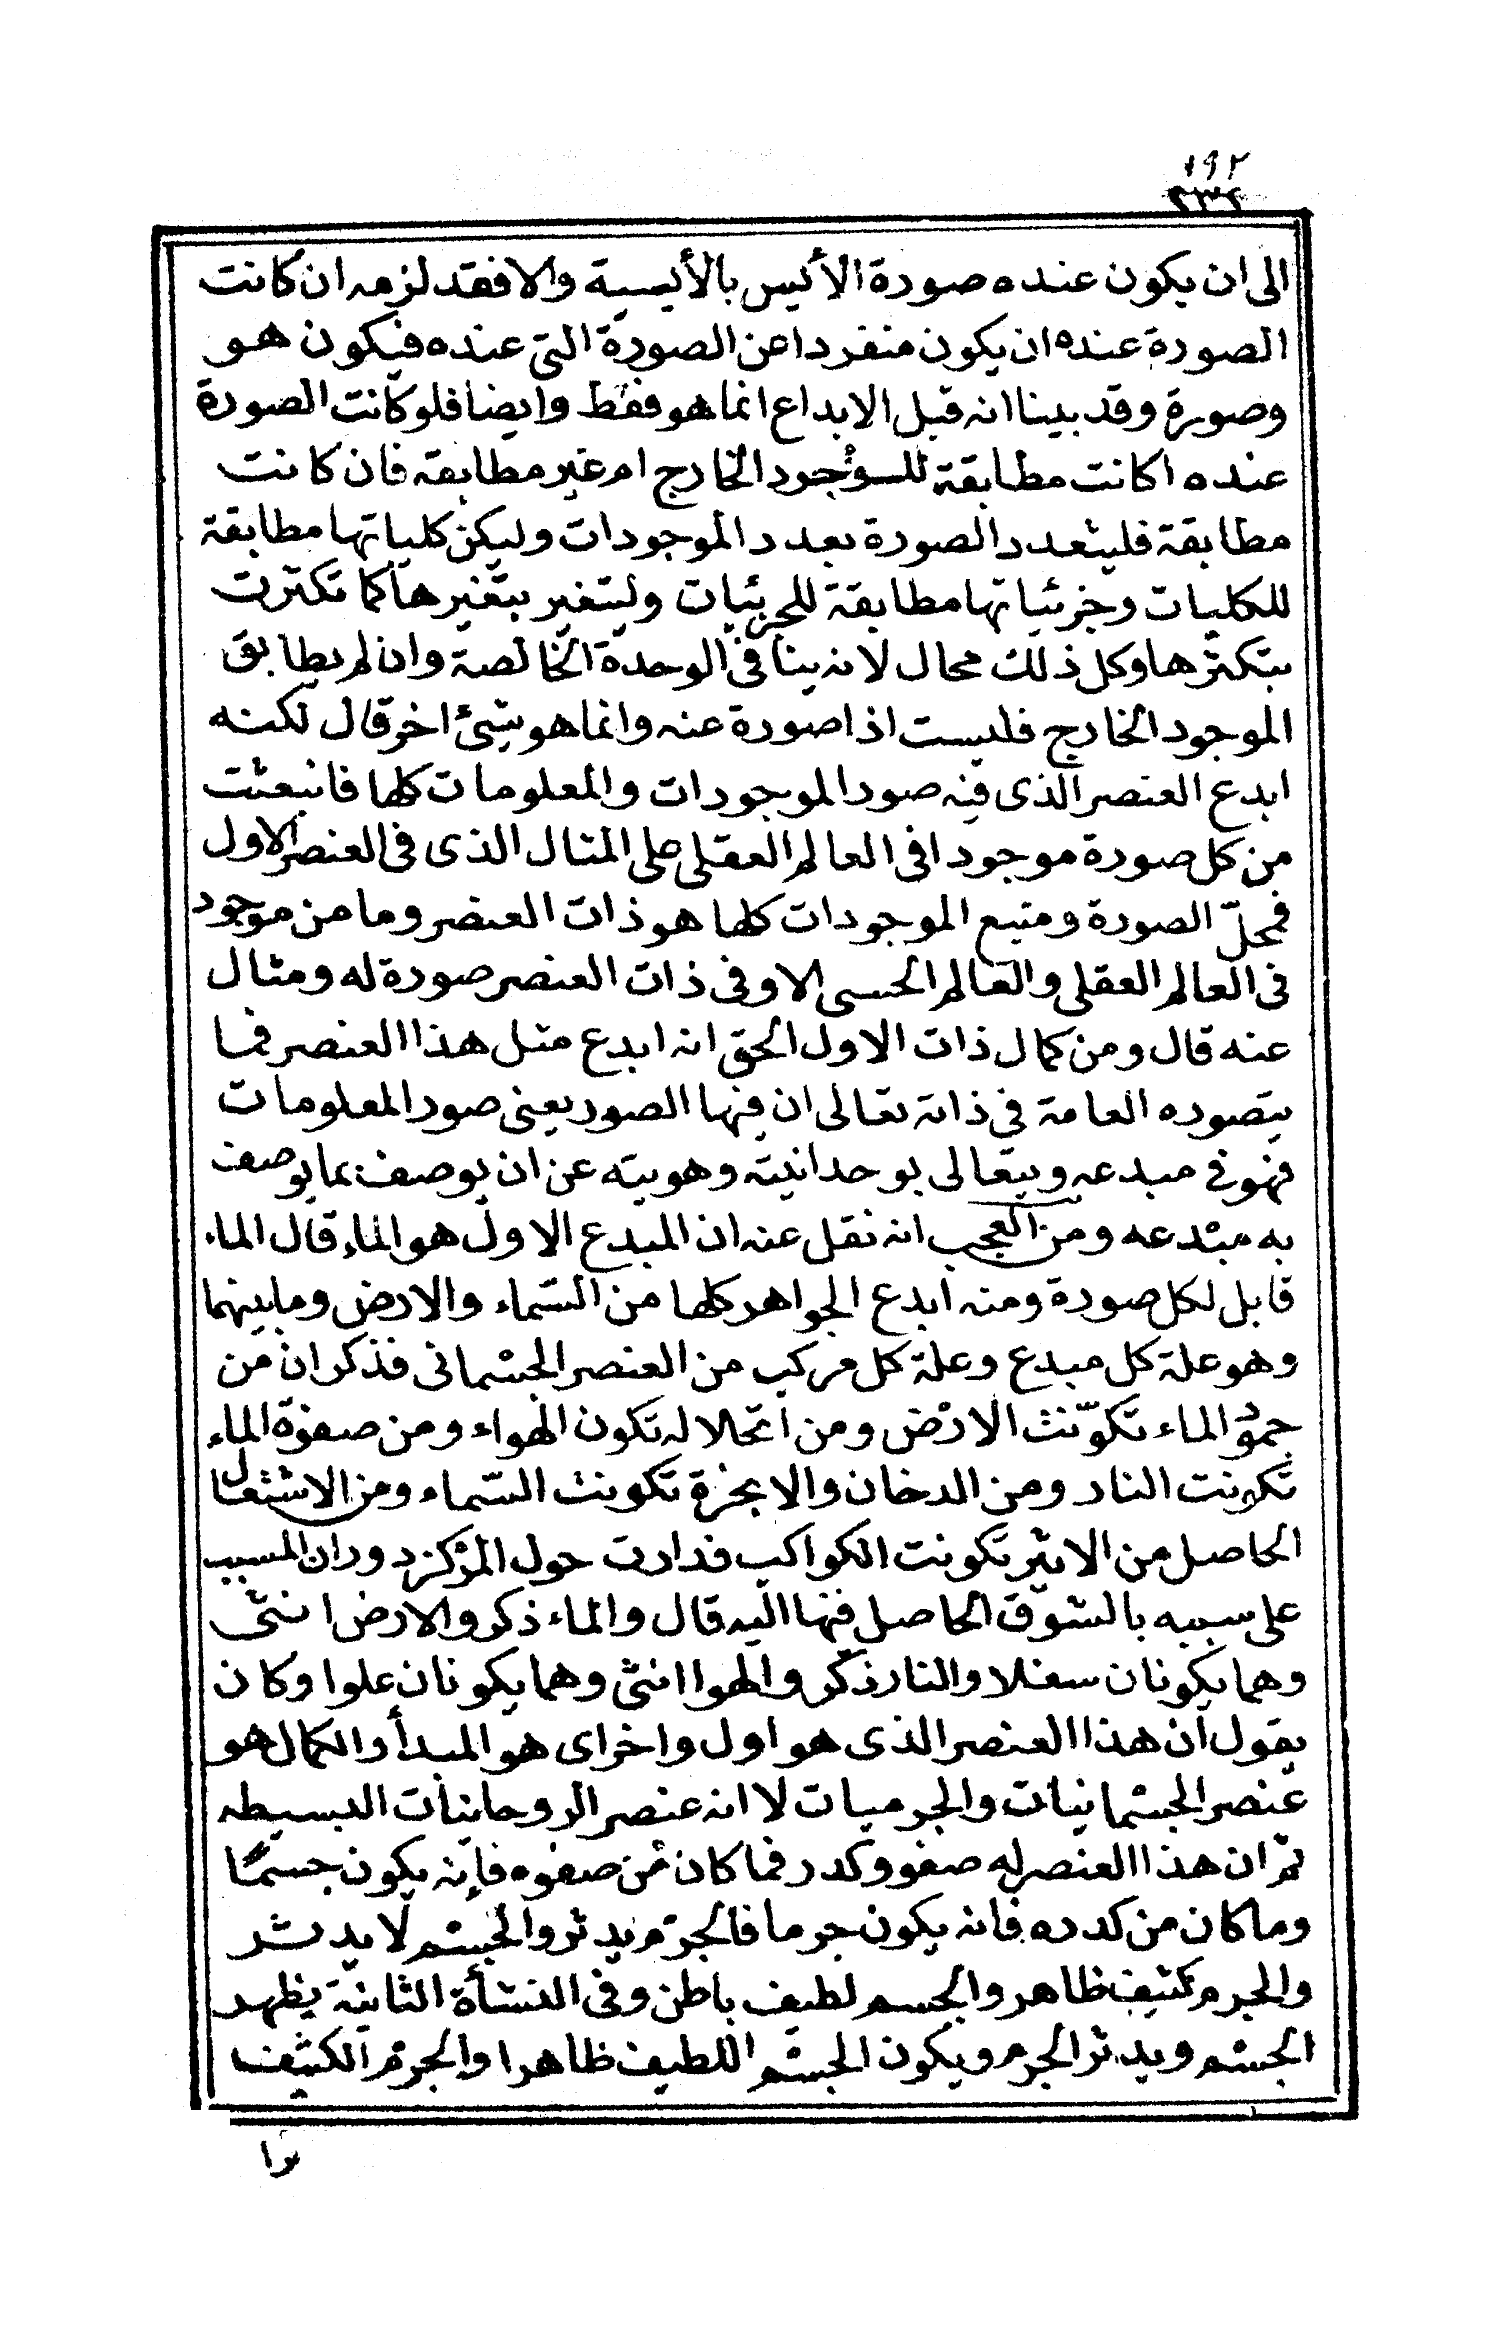 ١٩٢
٢٣٢
الى ان يكون عنده صورة الأيس بالأيسية والا فقد لزمه ان كانت
الصورة عنده ان يكون منفردا عن الصورة التى عنده فيكون هو
وصورة وقد بينا انه قبل الابداع انما هو فقط وايضا فلو كانت الصورة
عنده اكانت مطابقة للموجود الخارج ام غير مطابقة فان كانت
مطابقة فليتعدد الصورة بعدد الموجودات وليكن كلياتها مطابقة
للكليات وجزئياتها مطابقة للجزئيات ولتتغير بتغيرها كما تكثرت
بتكثرها وكل ذلك محال لانه ينافى الوحدة الخالصة وان لم يطابق
الموجود الخارج فليست اذا صورة عنه وانما هو شئ اخر قال لكنه
ابدع العنصر الذى فيه صور الموجودات والمعلومات كلها فانبعثت
من كل صورة موجود افى العالم العقلى على المثال الذى فى العنصر الاول
فمحلّ الصورة ومنبع الموجودات كلها هو ذات العنصر وما من موجود
فى العالم العقلى والعالم الحسى الا وفى ذات العنصر صورة له ومثال
عنه قال ومن كمال ذات الاول الحق انه ابدع مثل هذا العنصر فما
يتصوره العامة فى ذاته تعالى ان فيها الصور يعنى صور المعلومات
فهو فى مبدعه ويتعالى بوحدانيته وهويته عن ان يوصف بما يوصف
به مبدعه ومن العجب انه نقل عنه ان المبدع الاول هو الماء قال الماء
قابل لكل صورة ومنه ابدع الجواهر كلها من السّماء والارض وما بينهما
وهو علة كل مبدع وعلة كل مركب من العنصر الجسمانى فذكر ان من
جمود الماء تكوّنت الارض ومن انحلاله تكون الهواء ومن صفوة الماء
تكونت النار ومن الدخان والابخرة تكونت السّماء ومن الاشتعال
الحاصل من الاثير تكونت الكواكب فدارت حول المركز دوران المسبب
على سببه بالشوق الحاصل فيها اليه قال والماء ذكر والارض انثى
وهما يكونان سفلا والنار ذكر والهوا انثى وهما يكونان علوا وكان
يقول ان هذا العنصر الذى هو اول واخر اى هو المبدأ والكمال هو
عنصر الجسمانيات والجرميات لا انه عنصر الروحانيات البسيطه
ثم ان هذا العنصر له صفو وكدر فما كان من صفوه فإنه يكون جسما
وما كان من كدره فانه يكون جرما فالجرم يدثر والجسم لا يدثر
والجرم كثيف ظاهر والجسم لطيف باطن وفى النشأة الثانية يظهر
الجسم ويدثر الجرم ويكون الجسم اللطيف ظاهرا والجرم الكثيف